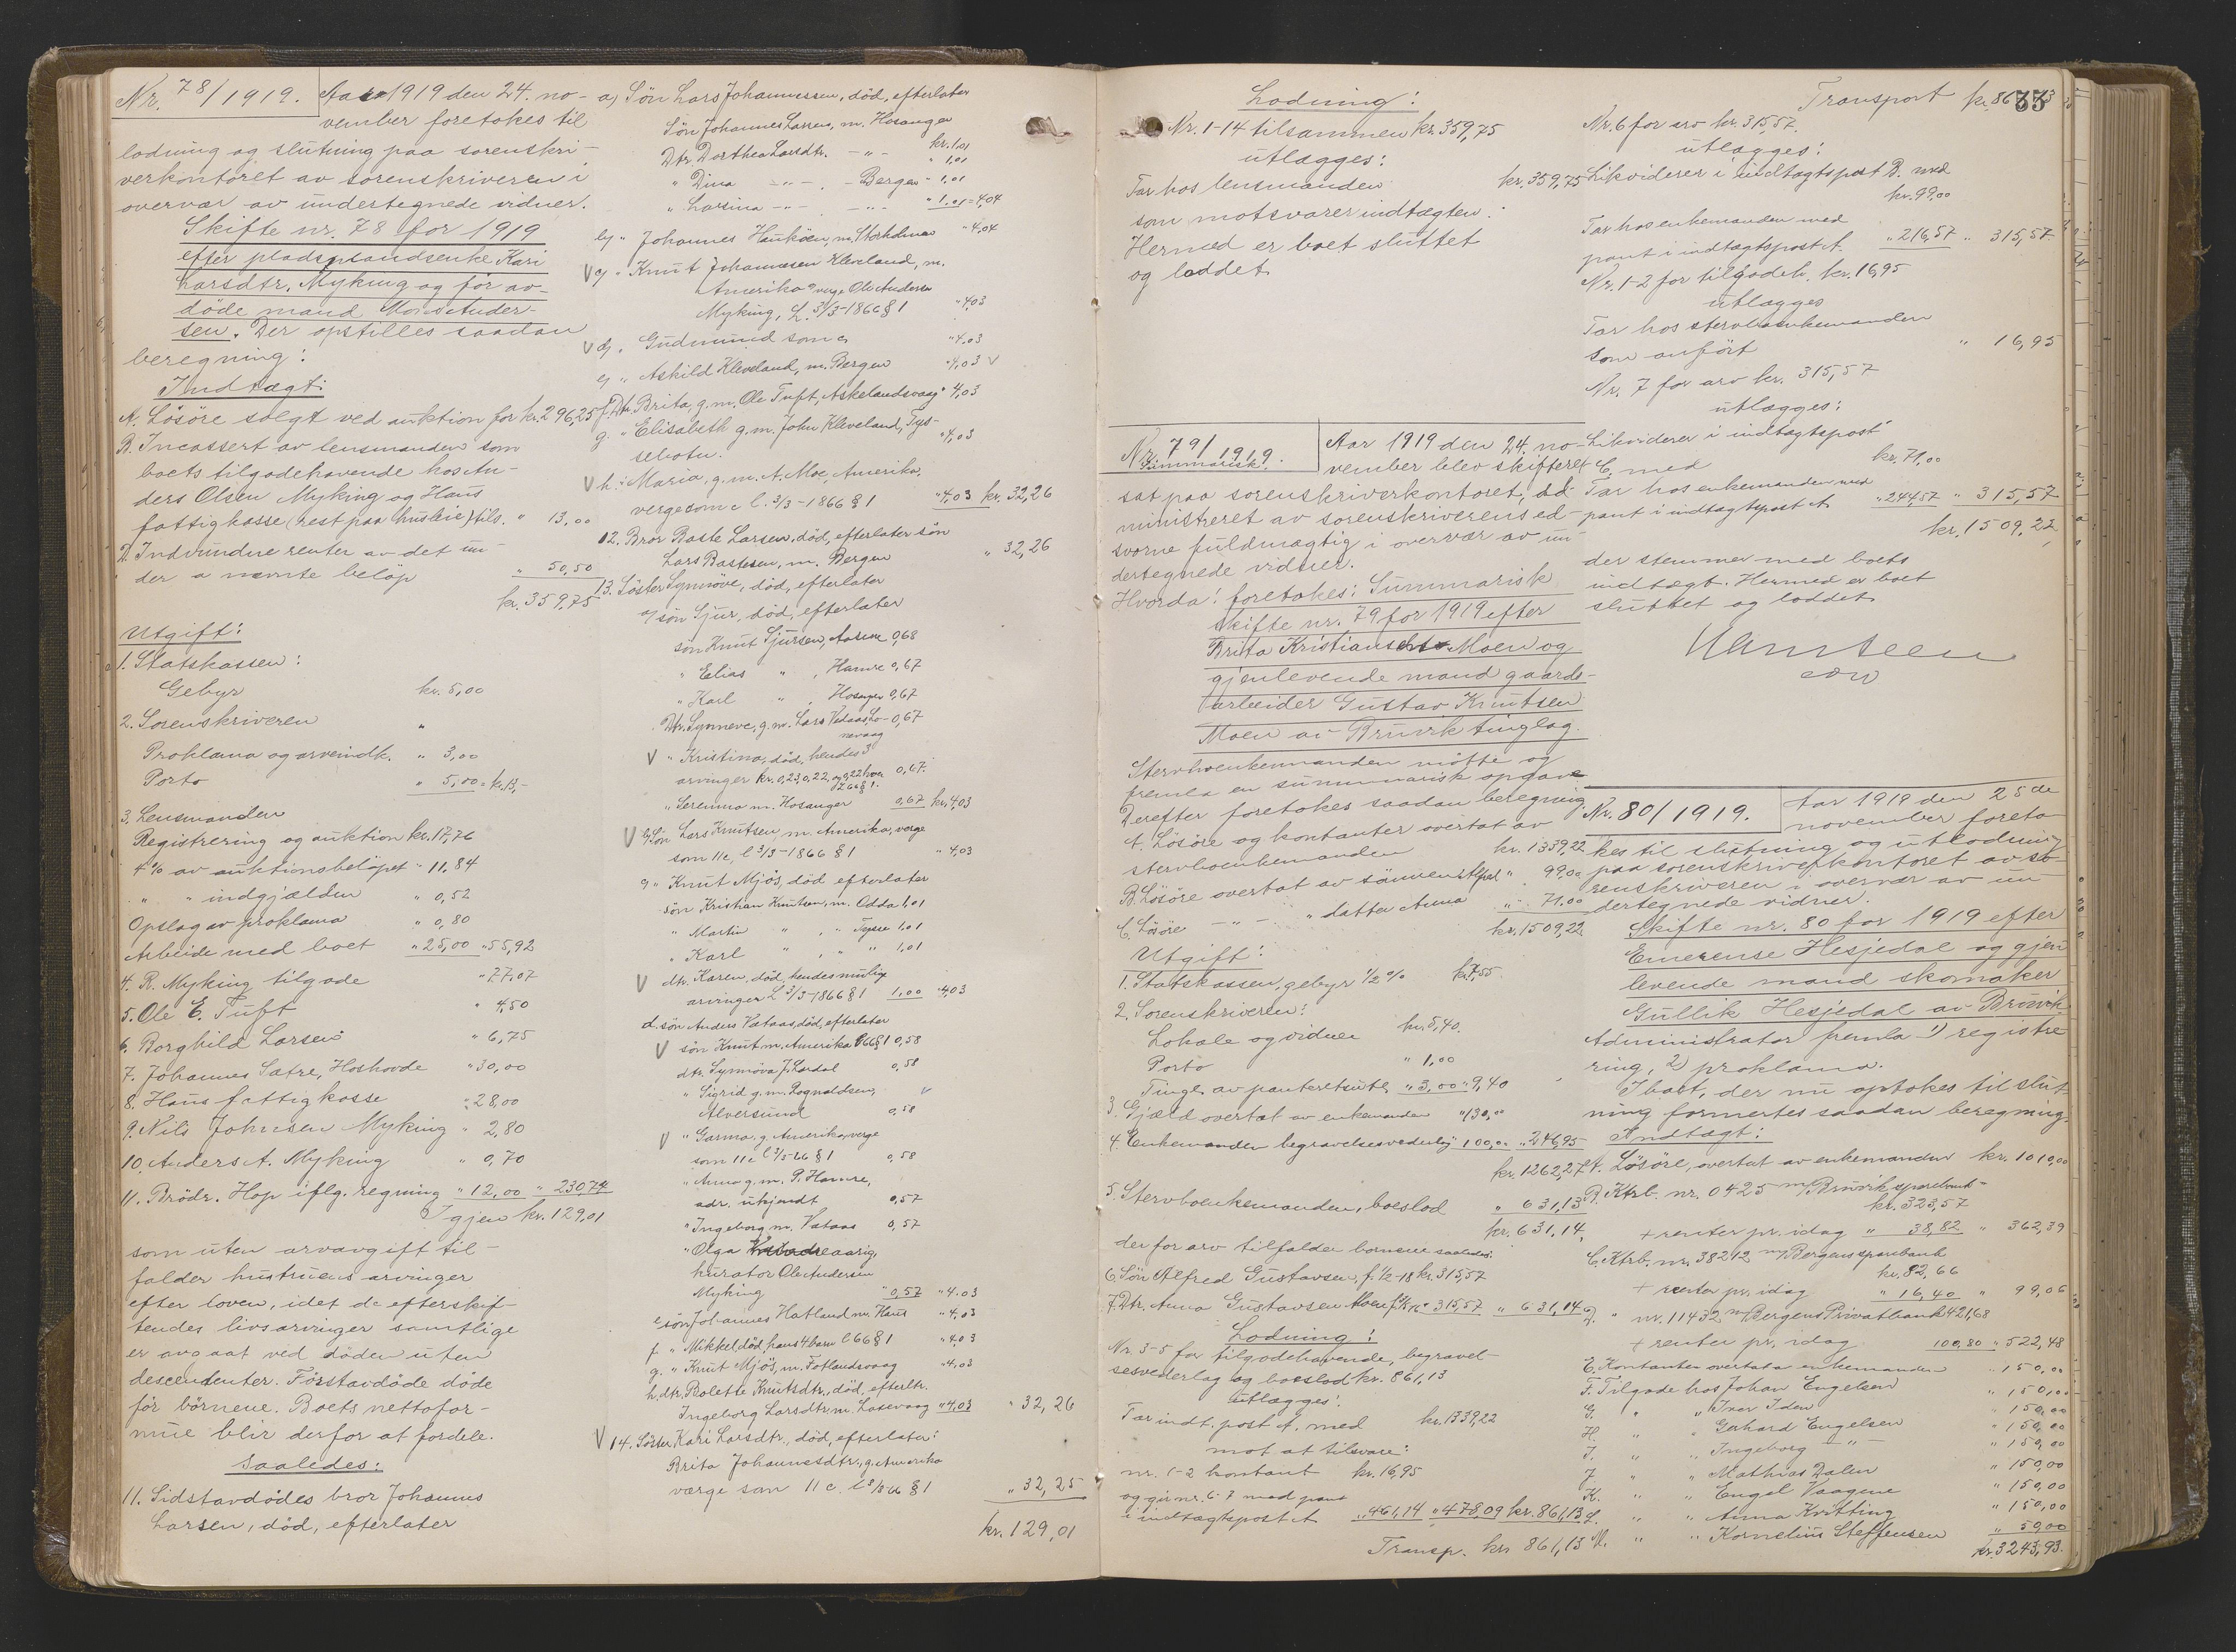 Nr. 78/1919. Aar 1919 den 24. no-
vember foretokes til
lodning og slutning paa sorenskri-
verkontoret av sorenskriveren i
overvær av undertegnede vidner.
Skifte nr. 78 for 1919
efter pladsmandsenke Kari
Larsdtr. Myking og før av-
døde mand Mons Ander-
sen. Der opstilles saadan
beregning:
Indtægt:
A. Løsøre solgt ved auktion for kr. 296,25
B. Incassert av lensmanden som
boets tilgodehavende hos An-
ders Olsen Myking og Haus
fattigkasse (rest paa husleie) tils. " 13,00
D. Indvundne renter av det un-
der a nævnte beløp " 50,50
kr. 359,75
Utgift:
1. Statskassen:
Gebyr kr. 5,00
2. Sorenskriveren "
Proklama og arveindk. " 3,00
Porto " 5,00 = kr. 13,-
3. Lensmanden
Registrering og auktion kr. 17,76
4% av auktionsbeløpet " 11,84
" " indgjælden " 0,52
Opslag av proklama " 0,80
Arbeide med boet " 25,00 " 55,92
4. R. Myking tilgode " 77,07
5. Ole E. Tuft " 4,50
6. Borghild Larsen " 6,75
7. Johannes Sætre, Hoshovde " 30,00
8. Haus fattigkasse " 28,00
9. Nils Johnsen Myking " 2,80
10. Anders A. Myking " 0,70
11. Brødr. Hop iflg. regning " 12,00 " 230,74
Igjen kr. 129,01
som uten arvavgift til-
falder hustruens arvinger
efter loven, idet de efterskif-
tendes livsarvinger samtlige
er avgaat ved døden uten
descendenter. Førstavdøde døde
før børnene. Boets nettofor-
mue blir derfor at fordele.
Saaledes:
11. Sidstavdødes bror Johannes
Larsen, død, efterlater
a) Søn Lars Johannessen, død, efterlater
Søn Johannes Larsen, m. Hosanger kr. 1,01
Dtr. Dorthea Larsdtr. - " - " 1,01
" Dina - " - - Bergen - 1,01
" Larsina - " - - " - " 1,01 = 4,04
b) " Johannes Haukøen, m. Stokholmen " 4,04
V c) " Knut Johannesen Kleveland, m.
Amerika verge Ole Andersen
Myking, L. 3/3-1866 § 1 " 4,03
V d) " Gudmund som c " 4,03
e) " Askild Kleveland, m. Bergen " 4,03 V
f. Dtr. Brita, g.m. Ole Tuft, Askelandsvaag " 4,03
g. " Elisabeth g.m. John Kleveland, Tys-
sebotn. " 4,03
V h. " Maria, g.m. A. Moe, Amerika,
verge som c l. 3/3-1866 § 1 " 4,03 kr. 32,26
12. Bror Baste Larsen, død, efterlater søn
Lars Bastesen, m. Bergen " 32,26
13. Søster Synnøve, død, efterlater
a/ søn Sjur, død, efterlater
søn Knut Sjursen, 0,68
" Elias " , Hamre 0,67
" Karl " , Hosanger 0,67
Dtr. Synneve, g.m. Lars Vataas, Lo- 0,67
nevaag
V " Kristina, død, hendes 3
arvinger kr. 0,23 0,22, og 0,22 hver 0,67.
L 66 § 1.
" Serenna m. Hosanger 0,67 kr. 4,03
V b) Søn Lars Knutsen m. Amerika, verge
som 11c, l 3/3-1866 § 1 " 4,03
c " Knut Mjøs, død efterlater
søn Kristian Knutsen, m. Odda 1,01
" Martin " , " Tysse 1,01
" Karl " , " " 1,01
V dtr. Karen, død, hendes mulige
arvinger L 3/3-1866 § 1 1,00 " 4,03
d. søn Anders Vataas, død, efterlater
V søn Knut m. Amerika l 66 § 1 0,58
dtr. Synnøva J. Lærdal 0,58
" Sigrid g.m. Rognaldsen, V
Alversund 0,58
V " Garma. g. Amerika, verge
som 11c l 3/3 66 § 1 0,58
" Anna g.m. P. Hamre,
adr. ukjendt 0,57
" Ingeborg m. Vataas 0,57
" Olga aarig,
kurator Ole Andersen
Myking " 0,57 " 4,03
e søn Johannes Hatland m. Haus " 4,03
f. " Mikkel, død, hans 4 barn l 66 § 1 " 4,03
g. " Knut Mjøs, m. Fotlandsvaag " 4,03
h. dtr. Bolette Knutsdtr., død, efterltr.
Ingeborg Larsdtr. m. Lonevaag " 4,03 " 32,26
V 14. Søster Kari Larsdtr., død, efterlater:
Brita Johannesdtr., g. Amerika
værge som 11 c. l 3/3 66 § 1 " 32,25
kr. 129,01
Lodning:
Nr. 1-14 tilsammen kr. 359,75
utlægges:
Tar hos lensmanden kr. 359,75
som motsvarer indtægten.
Hermed er boet sluttet
og loddet.
Nr. 79/1919.
Summarisk.
Aar 1919 den 24. no-
vember blev skifteret
sat paa sorenskriverkontoret, ad-
ministreret av sorenskriverens ed-
svorne fuldmægtig i overvær av un-
dertegnede vidner.
Hvorda: foretokes: Summarisk
skifte nr. 79 for 1919 efter
Brita Kristiansen Moen og
gjenlevende mand gaards-
arbeider Gustav Knutsen
Moen av Bruvik tinglag.
Stervboenkemanden møtte og
fremla en summarisk opgave
Derefter foretokes saadan beregning
A. Løsøre og kontanter overtat av
stervboenkemanden kr. 1339,22
B. Løsøre overtat av sønnen Alfred " 99,00
C. Løsøre - " - - " datter Anna " 71,00
kr. 1509,22
Utgift:
1. Statskassen, gebyr 1/2 % kr. 7,55
2. Sorenskriveren:
Lokale og vidner kr. 5,40.
Porto " 1,00
Tingl. av panteretsutl. " 3,00 " 9,40
3. Gjæld overtat av enkemanden " 130,00
4. Enkemanden begravelsesvederlag 100,00 " 246,95
kr. 1262,27
5. Stervboenkemanden, boeslod " 631,13
kr. 631,14,
der for arv tilfalder børnene saaledes:
6. Søn Alfred Gustavsen, f. 1/2-18 kr. 315,57
7. Dtr. Anna Gustavsen Moen " 315,57 " 631,14
Lodning:
Nr. 3-5 for tilgodehavende, begravel-
sesvederlag og boeslod kr. 861,13
utlægges:
Tar indt. post A. med kr. 1339,22
mot at tilsvare:
nr. 1-2 kontant kr. 16,95
og gir nr. 6-7 med pant
i indtægtspost A " 461,14 " 478,09 kr. 861,13
Transp. kr. 861,13
33
Transport kr. 861,13
Nr. 6 for arv kr. 315,57.
utlægges:
Likviderer i indtægtspost B. med
kr. 99,00
Tar hos enkemanden med
pant i indtægtspost A. " 216,57 " 315,57
Nr. 1-2 for tilgodeh. kr. 16,95
utlægges
Tar hos stervboenkemanden
som anført " 16,95
Nr. 7 for arv kr. 315,57
utlægges:
Likviderer i indtægtspost
C. med kr. 71,00
Tar hos enkemanden med
pant i indtægtspost A " 244,57 " 315,57
kr. 1509,22,
der stemmer med boets
indtægt. Hermed er boet
sluttet og loddet.
Nr. 80/1919. Aar 1919 den 25de
november foreto-
kes til slutning og utlodning
paa sorenskriverkontoret av so-
renskriveren i overvær av un-
dertegnede vidner.
Skifte nr. 80 for 1919 efter
Emerense Hesjedal og gjen
levende mand skomaker
Gullik Hesjedal av Bruvik.
Administrator fremla 1) registre
ring, 2) proklama.
I boet, der nu optokes til slut-
ning formertes saadan beregning:
Indtægt:
A. Løsøre, overtat av enkemanden kr. 1010,00
B. Ktrb. nr. 0425 m/Bruvik sparebank
kr. 323,57
+ renter pr. idag " 38,82 " 362,39
C. Ktrb. nr. 38212 m/Bergens sparebank
kr. 82,66
+ renter pr. idag " 16,40 " 99,06
D. " nr. 11432 m/Bergens Privatbank 421,68
+ renter pr. idag 100,80 " 522,48
E. Kontanter overtat a enkemanden " 150,00
F. Tilgode hos Johan Engelsen " 150,00
G. " " Iver Iden " 150,00
H. " " Gerhard Engelsen " 150,00
I. " " Ingeborg - " - " 150,00
J " " Mathias Dalen " 150,00
K. " " Engel Vaagene " 150,00
L. " " Anna Kvitting " 150,00
M. " " Kornelius Steffensen " 50,00
kr. 3243,93.